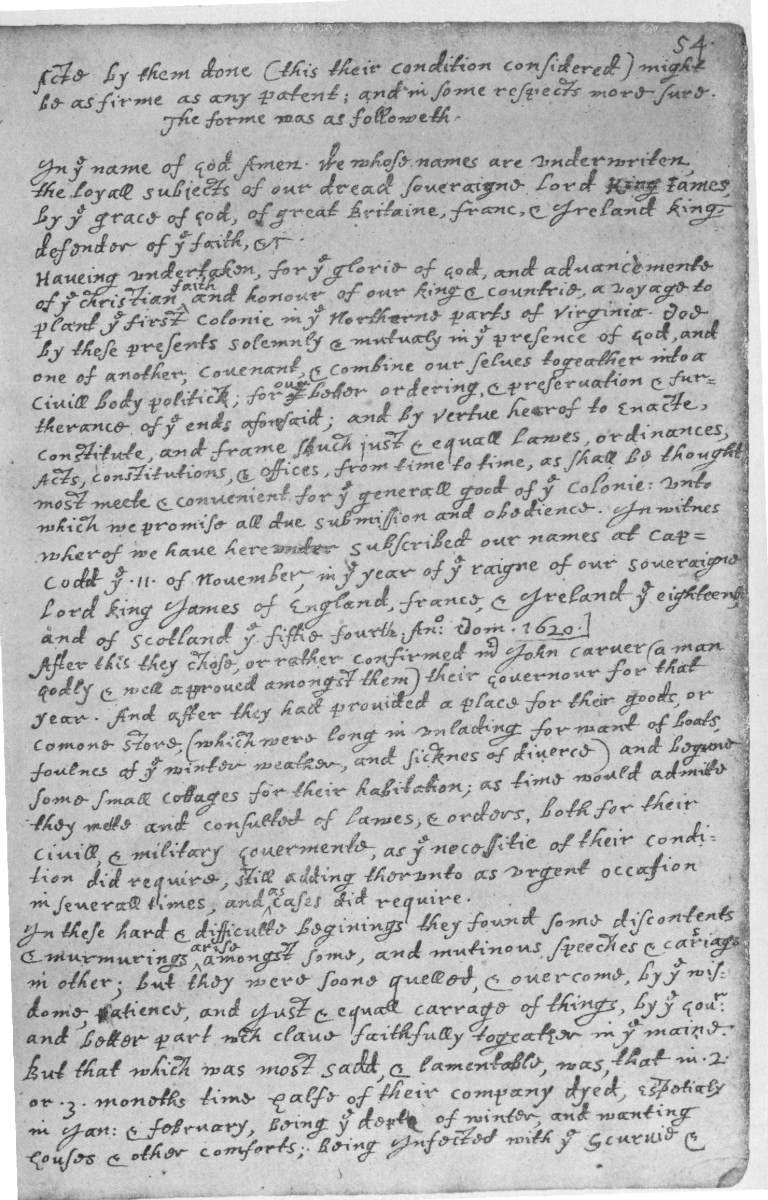 54.
Acte by them done (this their condition considered) might
be as firme as any patent; and in some respects more sure.
The forme was as followeth.
In yͤ name of God Amen. We whose names are underwriten,
the loyall subjects of our dread soveraigne Lord King James
by yͤ grace of God, of great Britaine, franc, & Ireland king,
defender of yͤ faith, &c.
Haveing undertaken, for yͤ glorie of God, and advancemente
of yͤ christian faith and honour of our king & countrie, a voyage to
plant yͤ first colonie in yͤ Northerne parts of Virginia. Doe
by these presents solemnly & mutualy in yͤ presence of God, and
one of another, covenant, & combine our selves togeather into a
Civill body politick; for our better ordering, & preservation & fur=
therance of yͤ ends aforesaid; and by vertue hearof to Enacte,
constitute, and frame shuch just & equall lawes, ordinances,
Acts, constitutions, & offices, from time to time, as shall be thought
most meete & convenient for yͤ generall good of yͤ Colonie: unto
which we promise all due submission and obedience. In witnes
wherof we have hereunder subscribed our names at Cap=
Codd yͤ .11. of November, in yͤ year of yͤ raigne of our soveraigne
Lord king James of England, france, & Ireland yͤ eighteenth
and of Scotland yͤ fiftie fourth. Anº: Dom. 1620.]
After this they chose, or rather confirmed mͬ John Carver (a man
godly & well approved amongst them) their Governour for that
year. And after they had provided a place for their goods, or
comone store, (which were long in unlading for want of boats,
foulnes of yͤ winter weather, and sicknes of diverce) and begune
some small cottages for their habitation; as time would admitte
they mette and consulted of lawes, & orders, both for their
civill, & military Govermente, as yͤ necessitie of their condi=
tion did require, still adding therunto as urgent occasion
in severall times, and as cases did require.
In these hard & difficulte beginings they found some discontents
& murmurings arise amongst some, and mutinous speeches & cariags
in other; but they were soone quelled, & overcome, by yͤ wis=
dome, patience, and just & equall carrage of things, by yͤ Govͬ:
and better part wch clave faithfully togeather in yͤ maine.
But that which was most sadd, & lamentable, was, that in .2.
or .3. moneths time halfe of their company dyed, espetialy
in Jan: & february, being yͤ depth of winter, and wanting
houses & other comforts; being Infected with yͤ Scurvie &